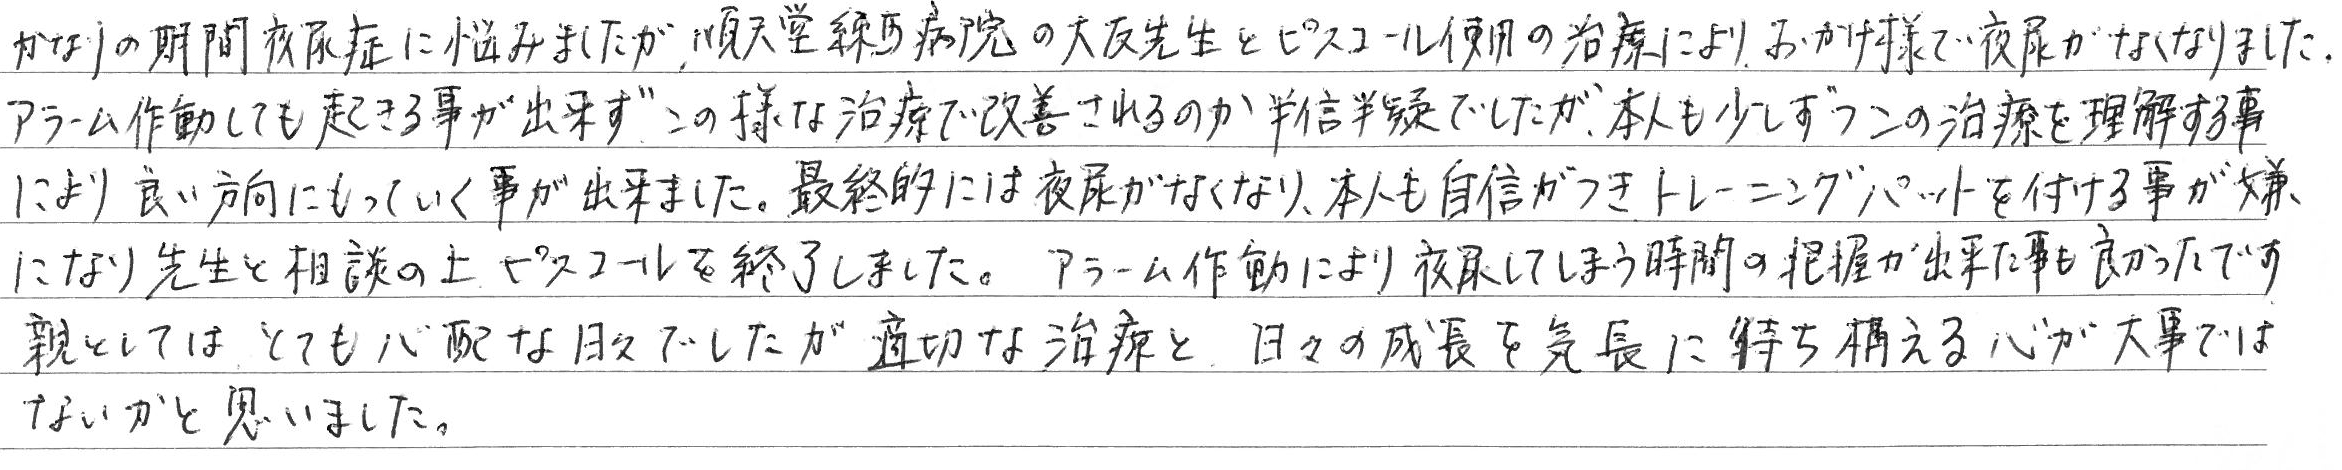 かなりの期間夜尿症に悩みましたが、順天堂練馬病院の大友先生とピスコール使用の治療により、おかげ様で夜尿がなくなりました。
アラーム作動しても起きる事が出来ず この様な治療で改善されるのか半信半疑でしたが、本人も少しずつこの治療を理解する事
により良い方向にもっていく事が出来ました。最終的には夜尿がなくなり、本人も自信がつきトレーニングパットを付ける事が嫌
になり先生と相談の上 ピスコールを終了しました。 アラーム作動により夜尿してしまう時間の把握が出来た事も良かったです
親としては とても心配な日々でしたが 適切な治療と 日々の成長を気長に待ち構える心が大事では
ないかと思いました。